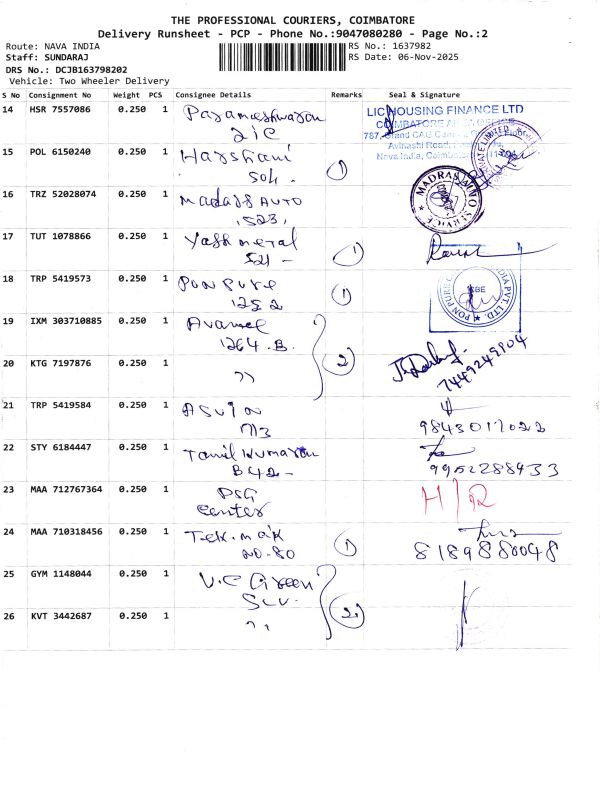 THE PROFESSIONAL COURIERS, COIMBATORE
Delivery Runsheet - PCP - Phone No.:9047080280 - Page No.:2
Route: NAVA INDIA RS No.: 1637982
Staff: SUNDARAJ RS Date: 06-Nov-2025
DRS No.: DCJB163798202
Vehicle: Two Wheeler Delivery
S No Consignment No Weight PCS Consignee Details Remarks Seal & Signature
14 HSR 7557086 0.250 1 Parameshwaran LIC HOUSING FINANCE LTD
COIMBATORE
787, Grand
Avinashi Road,
Nava India, Coimbatore
15 POL 6150240 0.250 1 Harshani 1
504.
16 TRZ 52028074 0.250 1 Madras AUTO MADRAS AUTO SERVICE
1523,
17 TUT 1078866 0.250 1 Yash metal 1
521 -
18 TRP 5419573 0.250 1 PON PURE 1 PON PURE
1252
19 IXM 303710885 0.250 1
1264.B. 2
20 KTG 7197876 0.250 1 " 7449249904
21 TRP 5419584 0.250 1 ASWIN
M3 9843017022
22 STY 6184447 0.250 1 Tamil Kumaran
B42 - 9952288433
23 MAA 712767364 0.250 1 PSG H/R
center
24 MAA 710318456 0.250 1 Tek.mak 1
NO.80 8189880048
25 GYM 1148044 0.250 1 V.C Green 2
26 KVT 3442687 0.250 1 "